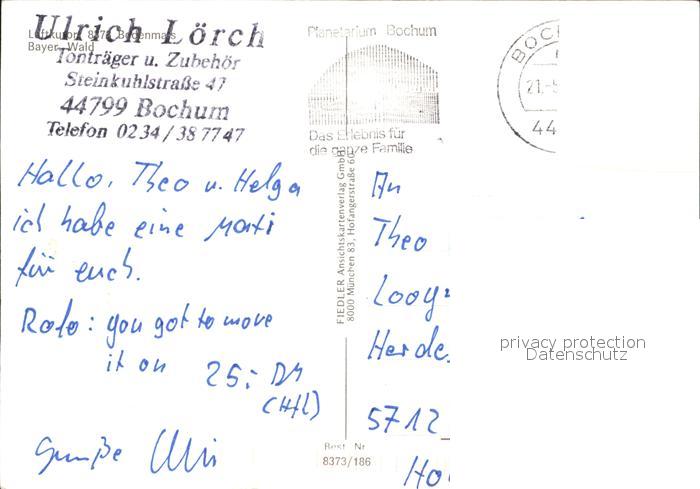 Luftkurort 8373 Bodenmais
Bayer. Wald
Ulrich Lörch
Tonträger u. Zubehör
Steinkuhlstraße 47
44799 Bochum
Telefon 0234/38 7747
Planetarium Bochum
Das Erlebnis für
die ganze Familie
BOCH
21.-5
44
Hallo, Theo u. Helga
ich habe eine Maxi
für euch.
Rofo: you got to move
it on 25,- DM
(Hfl)
Grüße Uli
FIEDLER Ansichtskartenverlag GmbH
8000 München 83, Hofangerstraße 60
Best. Nr.
8373/186
An
Theo
Looy
Herde
5712
Ho
privacy protection
Datenschutz